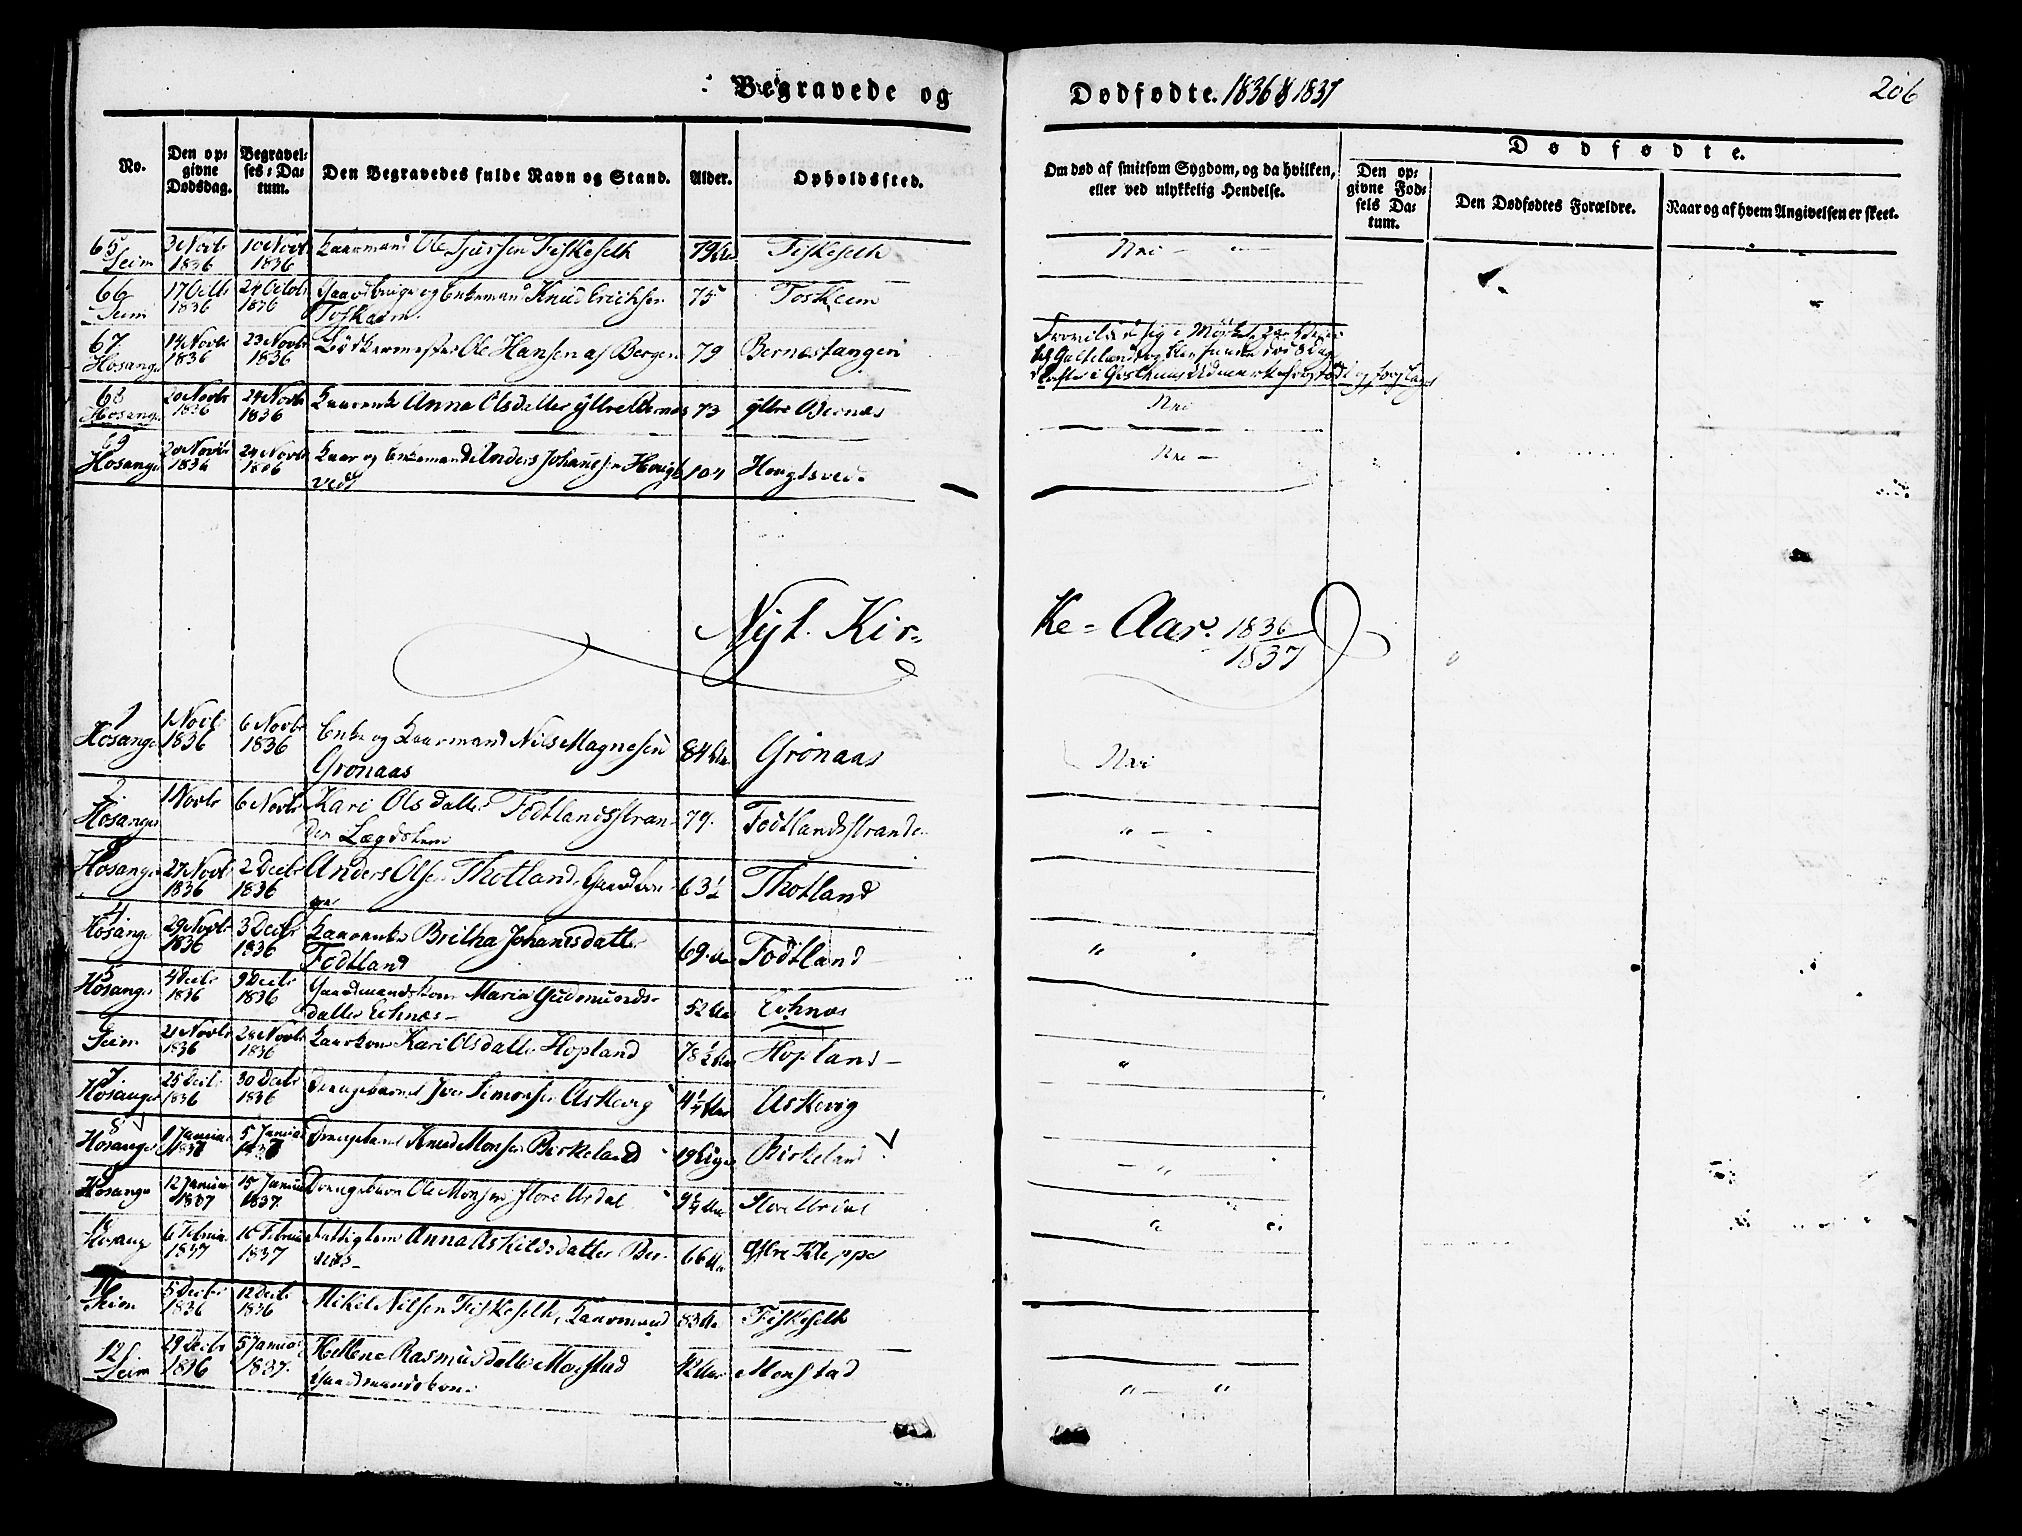 Begravede og Dødfødte. 1836 & 1837
206
No.
Den opgivne Dødsdag.
Begravelses-Datum.
Den Begravedes fulde Navn og Stand.
Alder.
Opholdssted.
Om død af smitsom Sygdom, og da hvilken, eller ved ulykkelig Hendelse.
Dødfødte.
Den opgivne Fødsels Datum.
Den Dødfødtes Forældre.
Naar og af hvem Angivelsen er skeet.
65 Seim 3 Novbr 1836 10 Novbr 1836 Kaarmand Ole Sjursen Fiskeseth 79 Fiskeseth Nei
66 Seim 17 Octbr 1836 24 Octobr 1836 Gaardbruger og Enkemand Knud Erichsen Toskeim 75 Toskeim
67 Hosanger 14 Novbr 1836 23 Novbr 1836 Bødkermester Ole Hansen af Bergen 79 Bernestangen
68 Hosanger 20 Novbr 1836 24 Novbr 1836 Kaarenke Anna Olsdatter yttre Bernæs 73 yttre Bernæs Nei
69 Hosanger 20 Novbr 1836 24 Novbr 1836 Kaar og Enkemand Anders Johannessen Hougtsvedt 104 Hougtsved Nei
Nyt Kirke-Aar 1836/1837
1 Hosanger 1 Novbr 1836 6 Novbr 1836 Enke og Kaarmand Nils Magnesen Grønaas 84 Aar Grønaas Nei
2 Hosanger 1 Novbr 6 Novbr Kari Olsdatter Fodtlandsstranden Lægdslem 79. Fodtlandsstranden "
3 Hosanger 27 Novbr 1836 2 Decbr 1836 Anders Olsen Thotland 63½ Thotland
4 Hosanger 29 Novbr 1836 3 Decbr 1836 Kaarenke Britha Johannesdatter Fodtland 69 Aar Fodtland "
5 Hosanger 4 Decbr 1836 9 Decbr 1836 Gaardmandskone Maria Gudmundsdatter Echnæs 52 Aar Echnæs
6 Seim 21 Novbr 1836 28 Novbr 1836 Kaarkone Kari Olsdatter Hopland 78½ Aar Hopland "
7 Hosanger 25 Decbr 1836 30 Decbr 1836 Drengebarnet Iver Simonsen Askevig 4¼ Aar Askevig
8 Hosanger 1 Januar 1837 5 Januar 1837 Drengebarnet Knud Monsen Birkeland 19 Uger Birkeland "
Hosanger 12 Januar 1837 15 Januar 1837 Drengebarn Ole Monsen store Urdal 9¼ Aar Store Urdal " "
10 Hosanger 6 Februar 1837 10 Februar 1837 Fattiglem Anna Askildsdatter Bernæs 66 Aar yttre Kleppe
11 Seim 5 Decbr 1836 12 Decbr 1836 Mikel Nilsen Fiskeseth, Kaarmand 83 Aar Fiskeseth
12 Seim 29 Decbr 1836 5 Januar 1837 Hellene Rasmusdatter Monstad Gaardmandskone 42 Aar Monstad " "